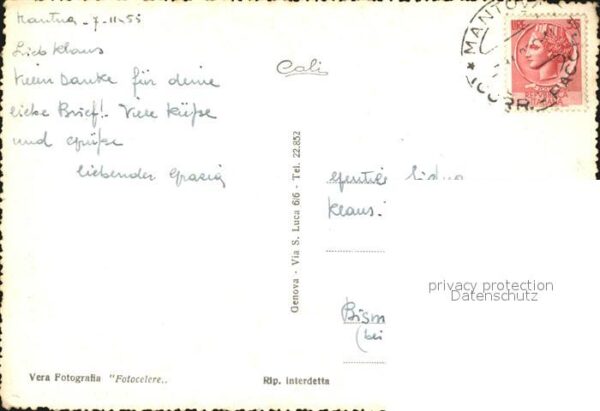 Mantua - 7-11-55
Lieb Klaus
Vielen Danke für deine
liebe Brief! Viele Küße
und Grüße
liebender
Cali
MANTOVA
CORR. PACC
Genova - Via S. Luca 6/6 - Tel. 22.852
Klaus.
Bism
(bei
privacy protection
Datenschutz
Vera Fotografia "Fotocelere„
Rip. interdetta